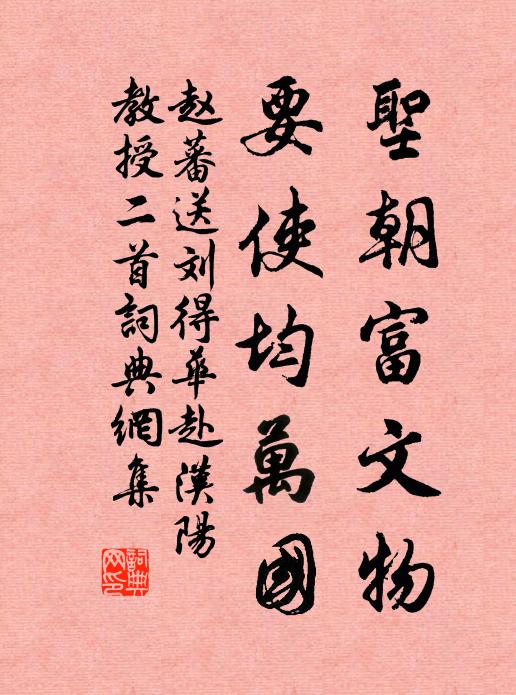 聖朝富文物
要使均萬國
赵蕃送刘得華赴漢陽
教授二首詞典網集
詞典
网印